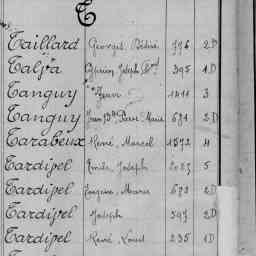 T
Taillard Georges, Désiré 776 2D
Talpa Cyprien Joseph 395 1D
Tanguy Jean 1411 3
Tanguy Jean Bte Pierre Marie 631 2D
Tarabeux René, Marcel 1572 4
Tardipel Emile, Joseph 2027 5
Tardipel Eugène, Marie 672 2D
Tardipel Joseph 597 2D
Tardipel René, Louis 235 1D